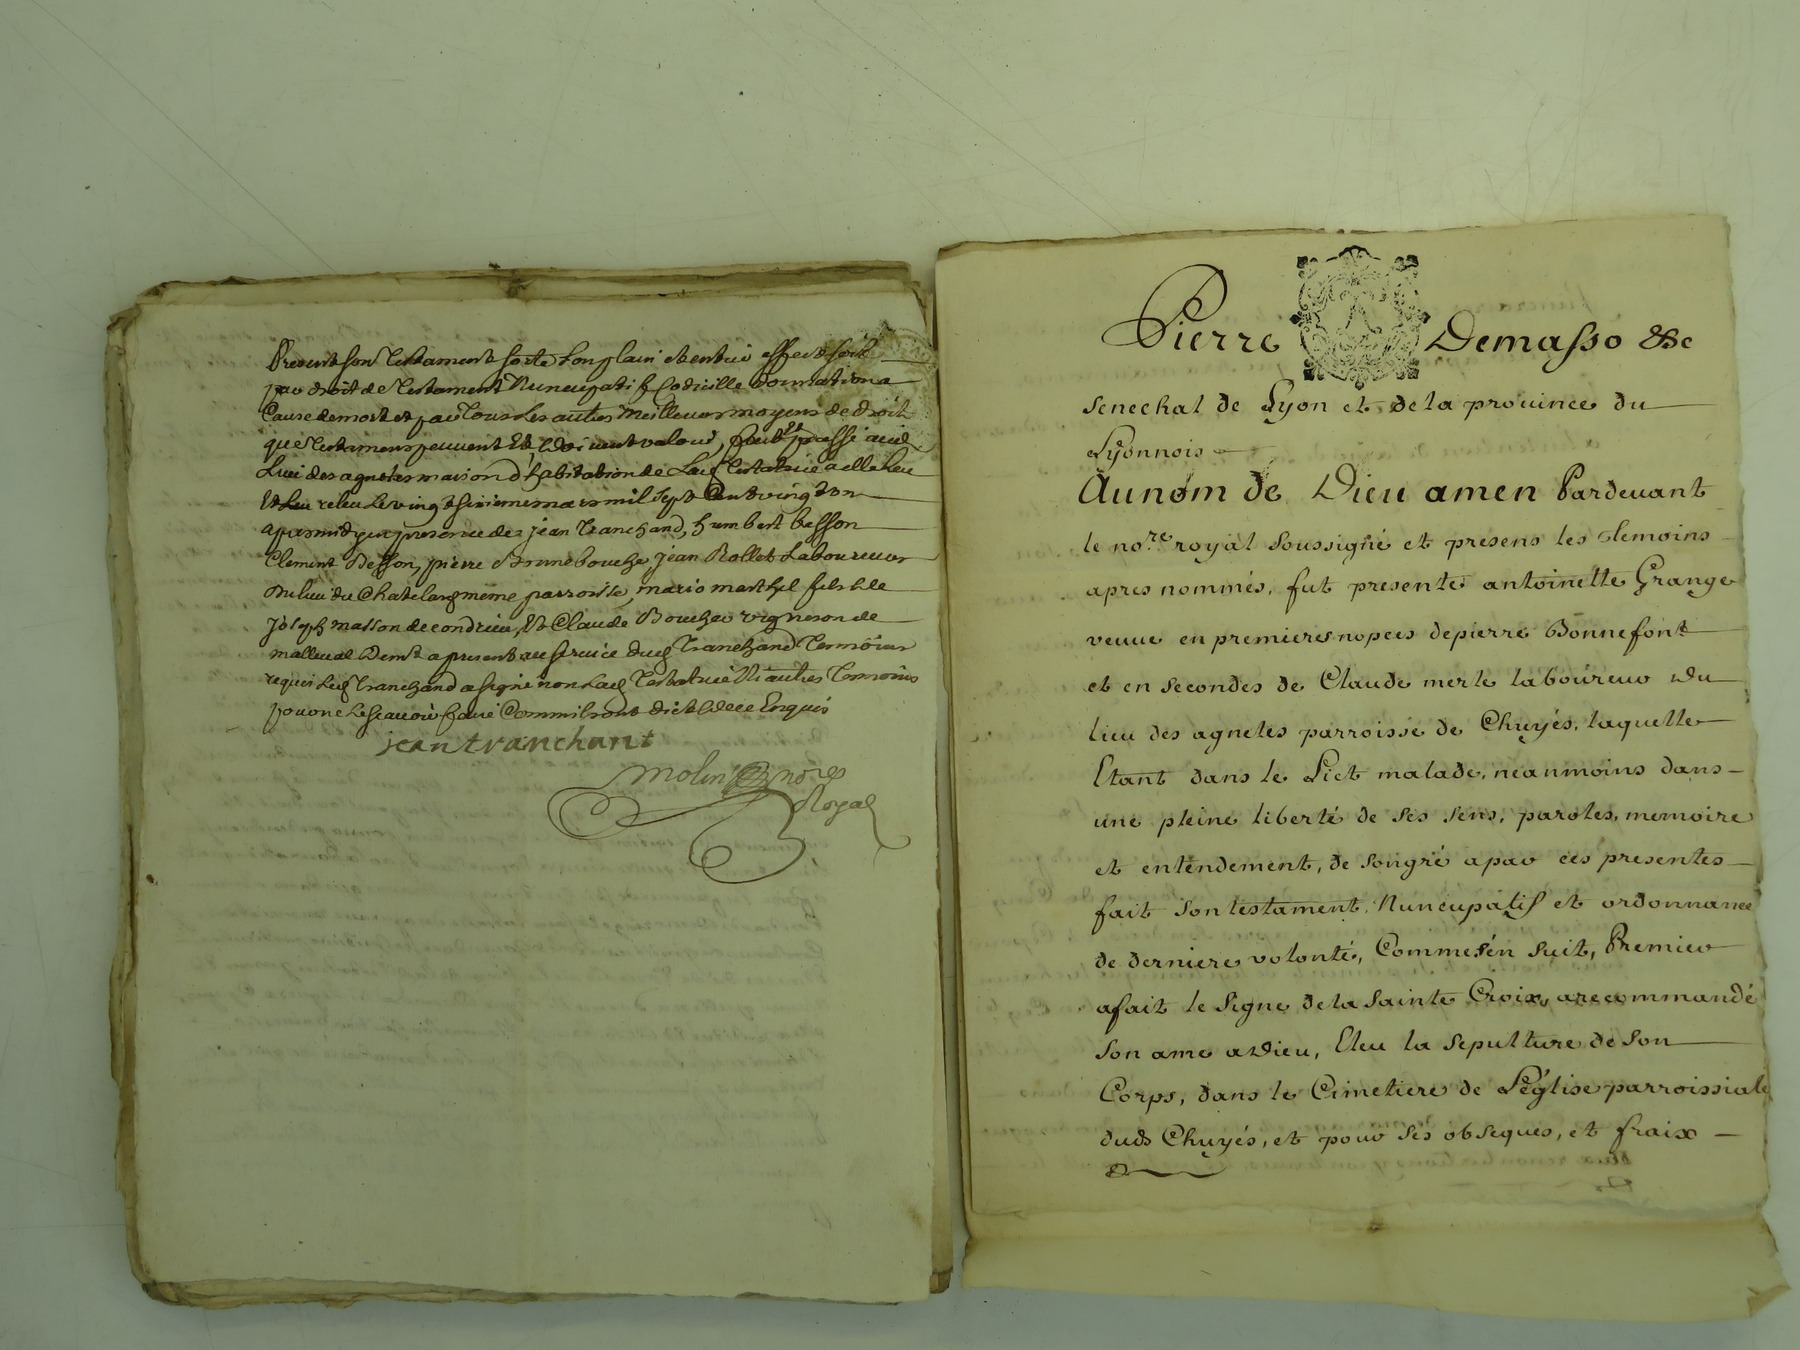 Present son testament sorte son plain et entier effect soit
par droit de testament Nuncupatif Codicille donnation a
Cause de mort et par tous les autres meilleurs moyens de droit
que testamens peuvent Et doivent valoir, fait et passé aud
Lieu des agnetes maison d'habitation de Lad testatrice a elle leu
Et releu le vingt sixieme mars mil sept Cent vingt
apres midy en presence de jean Tranchand, humbert besson
Clement Besson, pierre Bonnebouche, jean Rollet Laboureur
du lieu du Chatelard meme parroisse, mario fils de
joseph masson de condrieu, Et Claude Boucher vigneron de
malleval Demt a present au service dud Tranchand Temoins
requis led Tranchand a signé non Lad Testatrice Ni autres Temoins
pour ne le scavoir faire Comm'ils ont dict de ce Enquis
jean tranchant
molin nore
Royal
Pierre Demasso &c
senechal de Lyon et de la prouince du
Lyonnois
Au nom de Dieu amen Pardeuant
le nore royal soussigné et presens les Temoins
apres nommés, fut presente antoinette Grange
veuue en premieres nopces de pierre Bonnefont
et en secondes de Claude merle laboureur du
lieu des agnetes parroisse de Chuyés, laquelle
Etant dans le Lict malade, neanmoins dans
une pleine liberté de ses sens, paroles, memoire
et entendement, de son gré a par ces presentes
fait son testament Nuncupatif et ordonnance
de derniere volonté, Comme s'en suit, Premier
a fait le signe de la sainte Croix, a recommandé
son ame a Dieu, Eleu la sepulture de son
Corps, dans le Cimetiere de L'église parroissiale
dud Chuyés, et pour ses obseques, et fraix